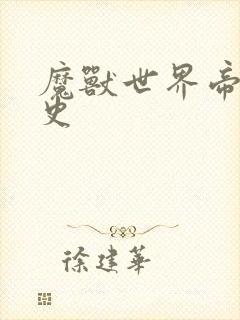 魔獸世界帝
史
徐建華